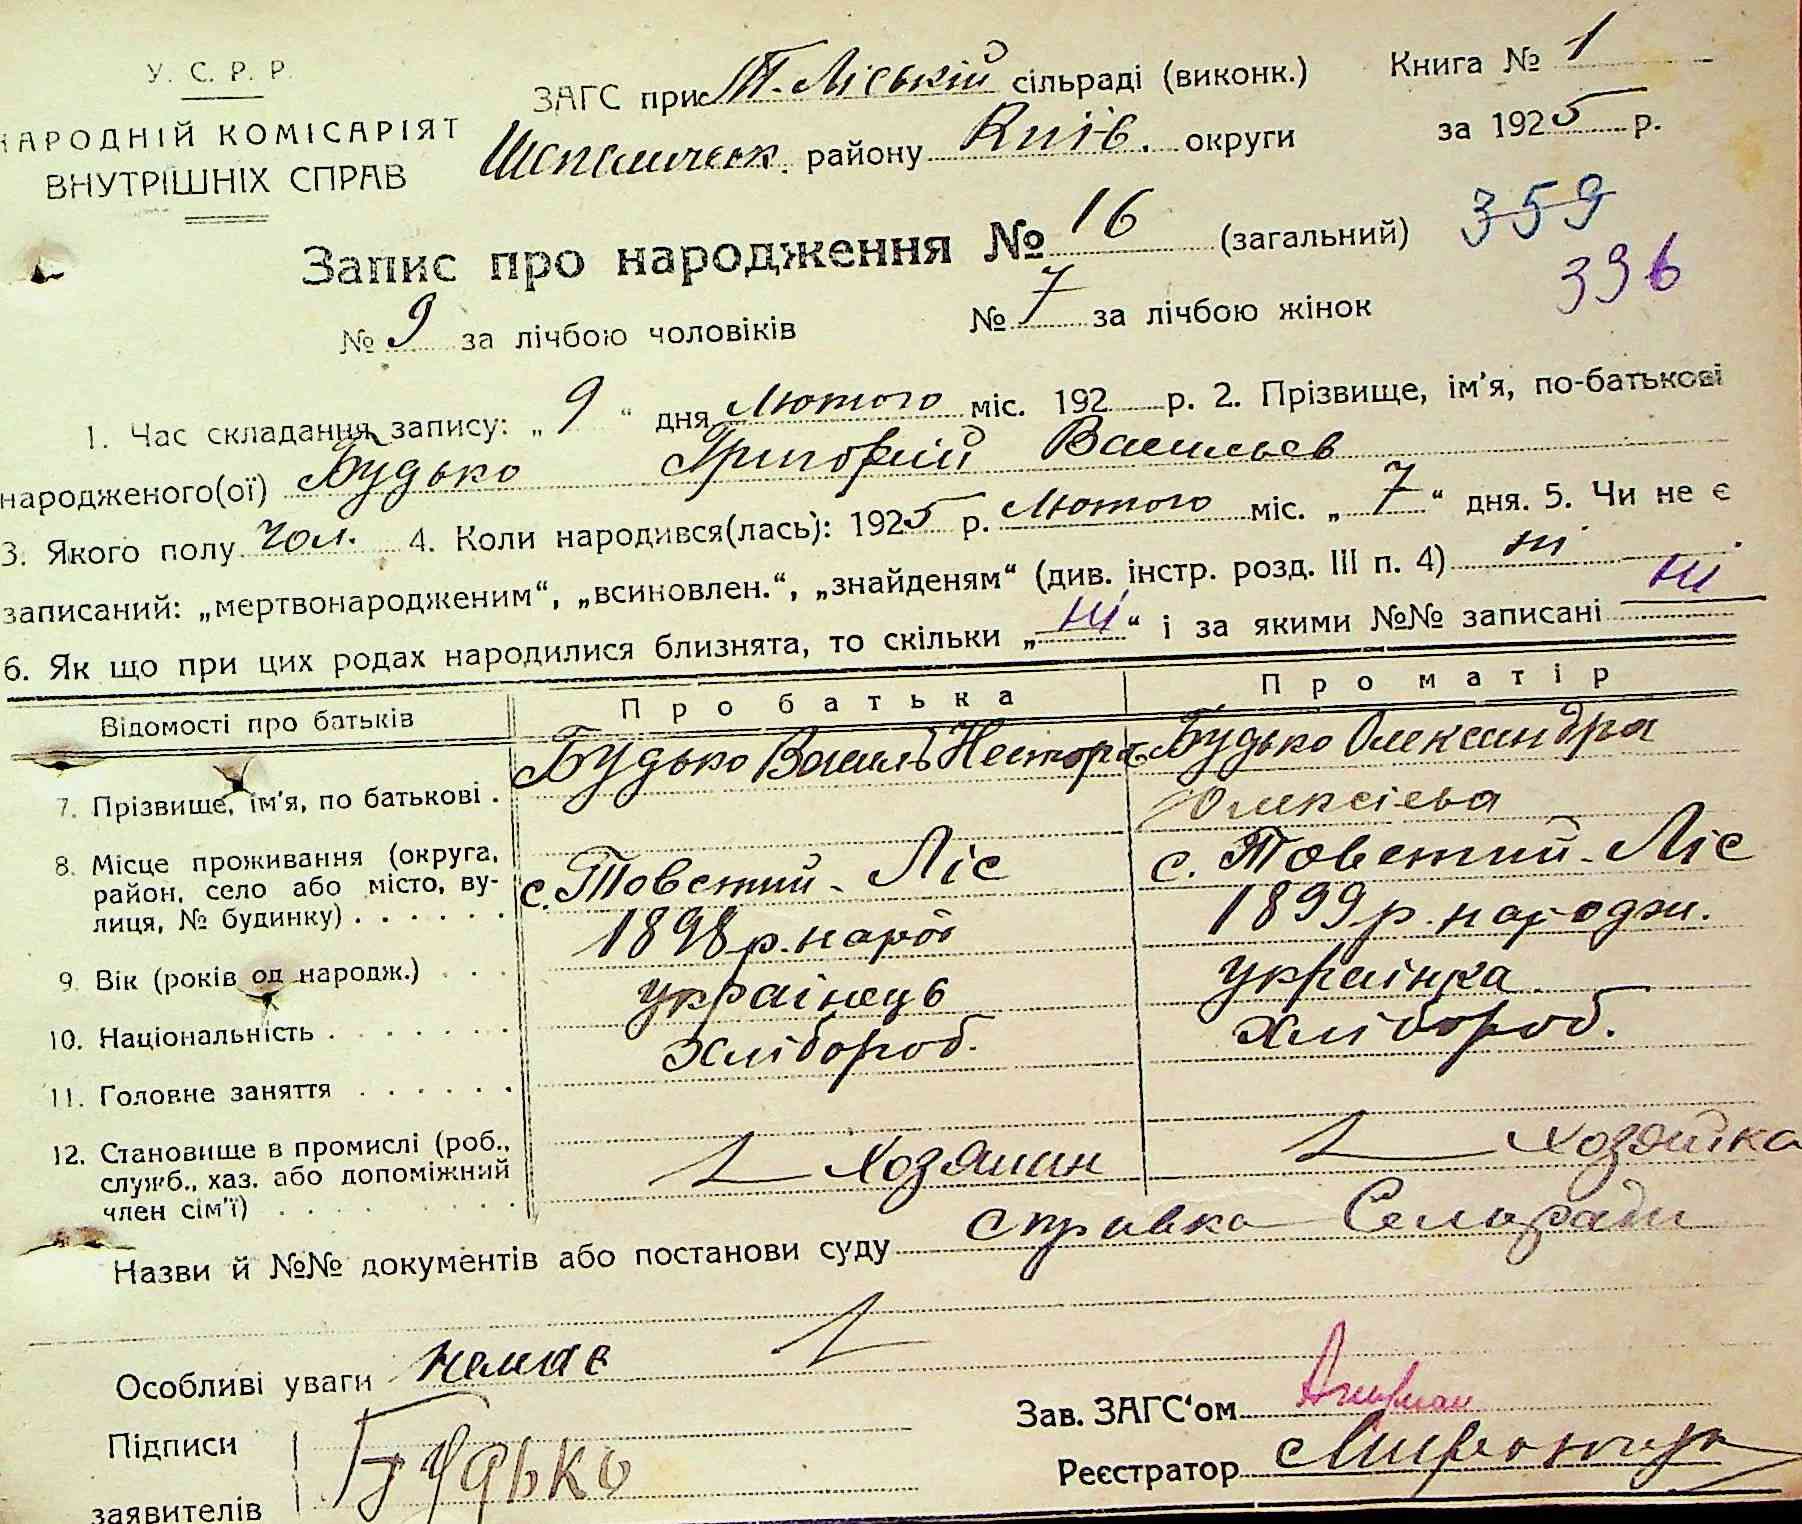 У. С. Р. Р.
НАРОДНІЙ КОМІСАРІЯТ
ВНУТРІШНІХ СПРАВ
ЗАГС при Т.-Ліській сільраді (виконк.) Книга № 1
Шепеличськ. району Київ. округи за 1925 р.
Запис про народження № 16 (загальний) 359
396
№ 9 за лічбою чоловіків № 7 за лічбою жінок
1. Час складання запису: „9“ дня Лютого міс. 192 р. 2. Прізвище, ім'я, по-батькові
народженого(ої) Будько Григорій Васильев
3. Якого полу чол. 4. Коли народився(лась): 1925 р. Лютого міс. „7“ дня. 5. Чи не є
записаний: „мертвонародженим“, „всиновлен.“, „знайденям“ (див. інстр. розд. III п. 4) ні
6. Як що при цих родах народилися близнята, то скільки „ні“ і за якими №№ записані ні
Відомості про батьків Про батька Про матір
7. Прізвище, ім'я, по батькові . Будько Василь Нестора Будько Олександра
Олексієва
8. Місце проживання (округа, район, село або місто, вулиця, № будинку) . . . . . . с. Товстий-Ліс с. Товстий-Ліс
9 Вік (років од народж.) . . . 1898 р. народ 1899 р. народж.
10. Національність . . . . . . . українець українка
11. Головне заняття . . . . . . хлібороб. хлібороб.
12. Становище в промислі (роб., служб., хаз. або допоміжний член сім'ї) . . . . . . . . . Хозяин хозяйка
Назви й №№ документів або постанови суду справка Сельради
Особливі уваги немає
Підписи
заявителів Будько
Зав. ЗАГС‘ом
Реєстратор